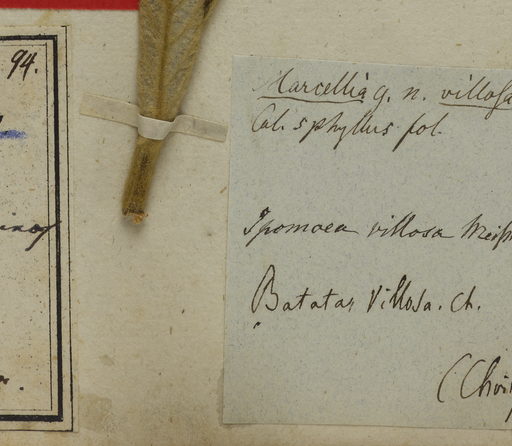 94.
Marcellia g. n. villosa
Cal. 5phyllus fol.
Ipomoea villosa Meisn
Batatas villosa. Ch.
(Chois